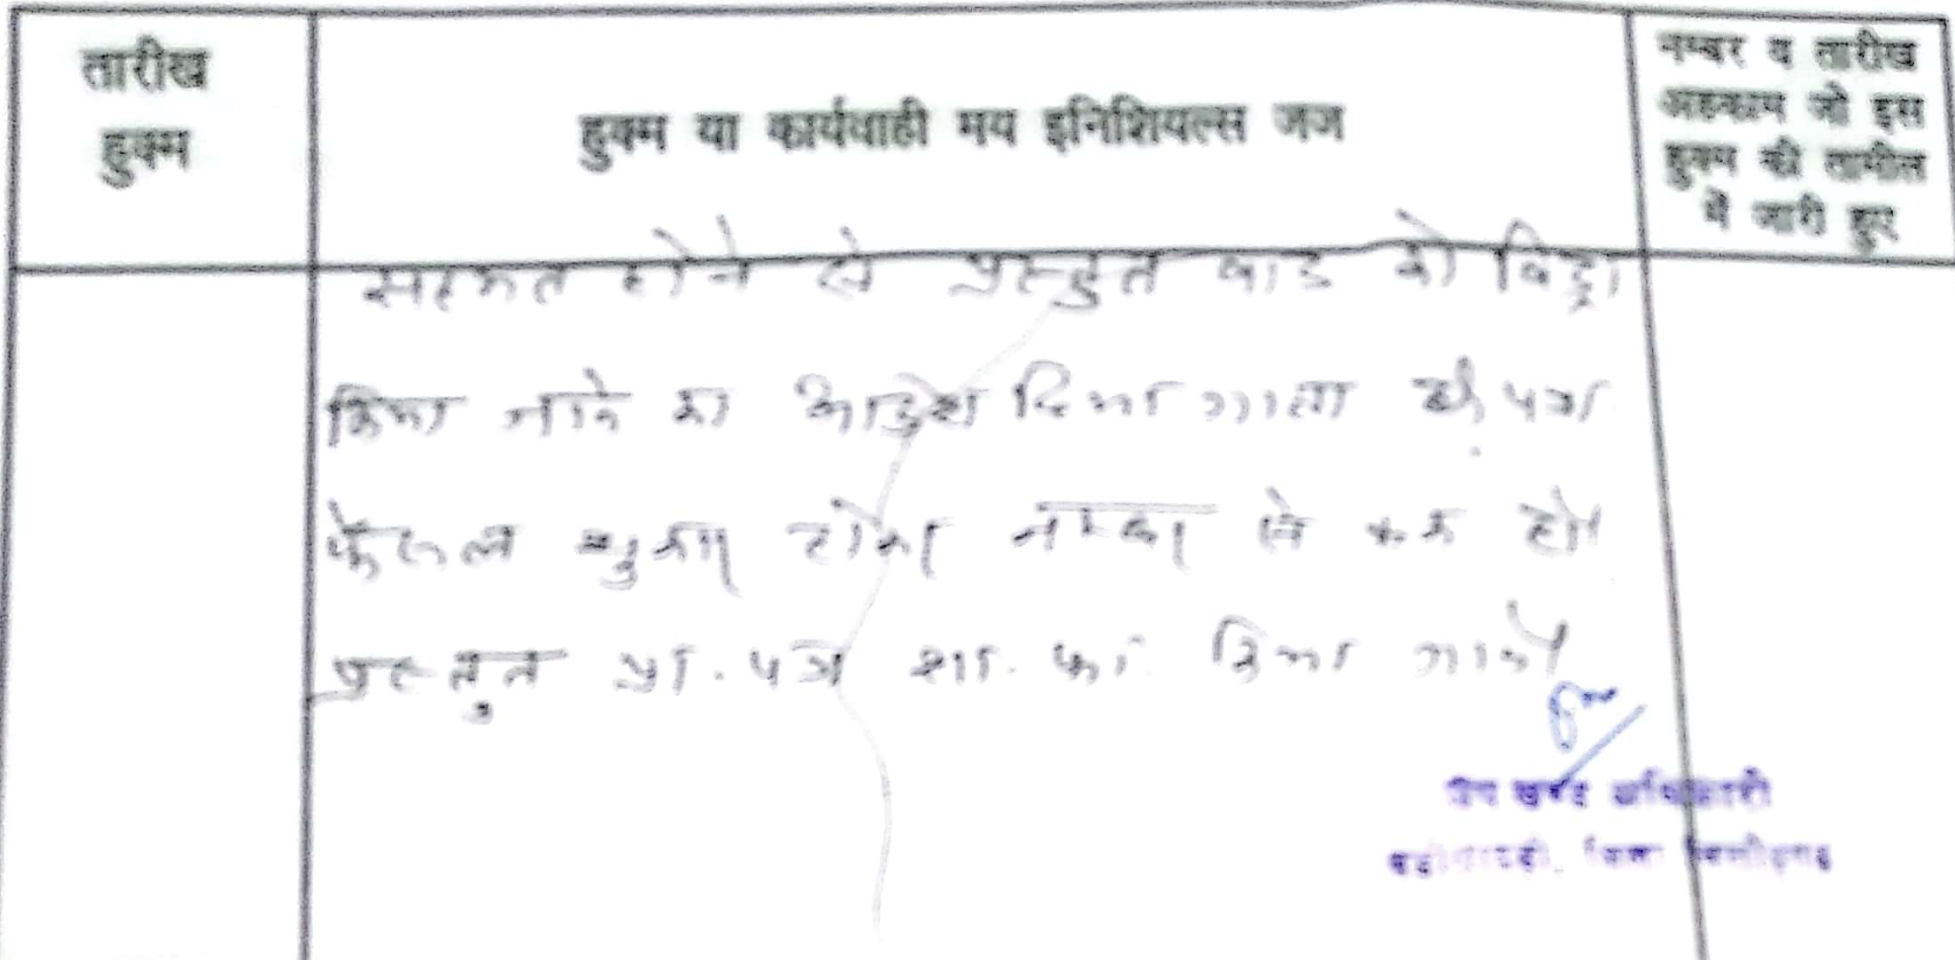 तारीख
हुक्म
हुक्म या कार्यवाही मय इनिशियल्स जज
नम्बर व तारीख
अहकाम जो इस
हुक्म की तामील
में जारी हुए
सहमत होने से प्रस्तुत वाद को विड्रा
किया जाने का आदेश दिया जाता है। पत्रा
फैसल शुमार होकर नम्बर से कम हो
प्रस्तुत प्रा. पत्र शा. फा. किया जावे
उप खण्ड अधिकारी
बड़ीसादड़ी, जिला चित्तौड़गढ़